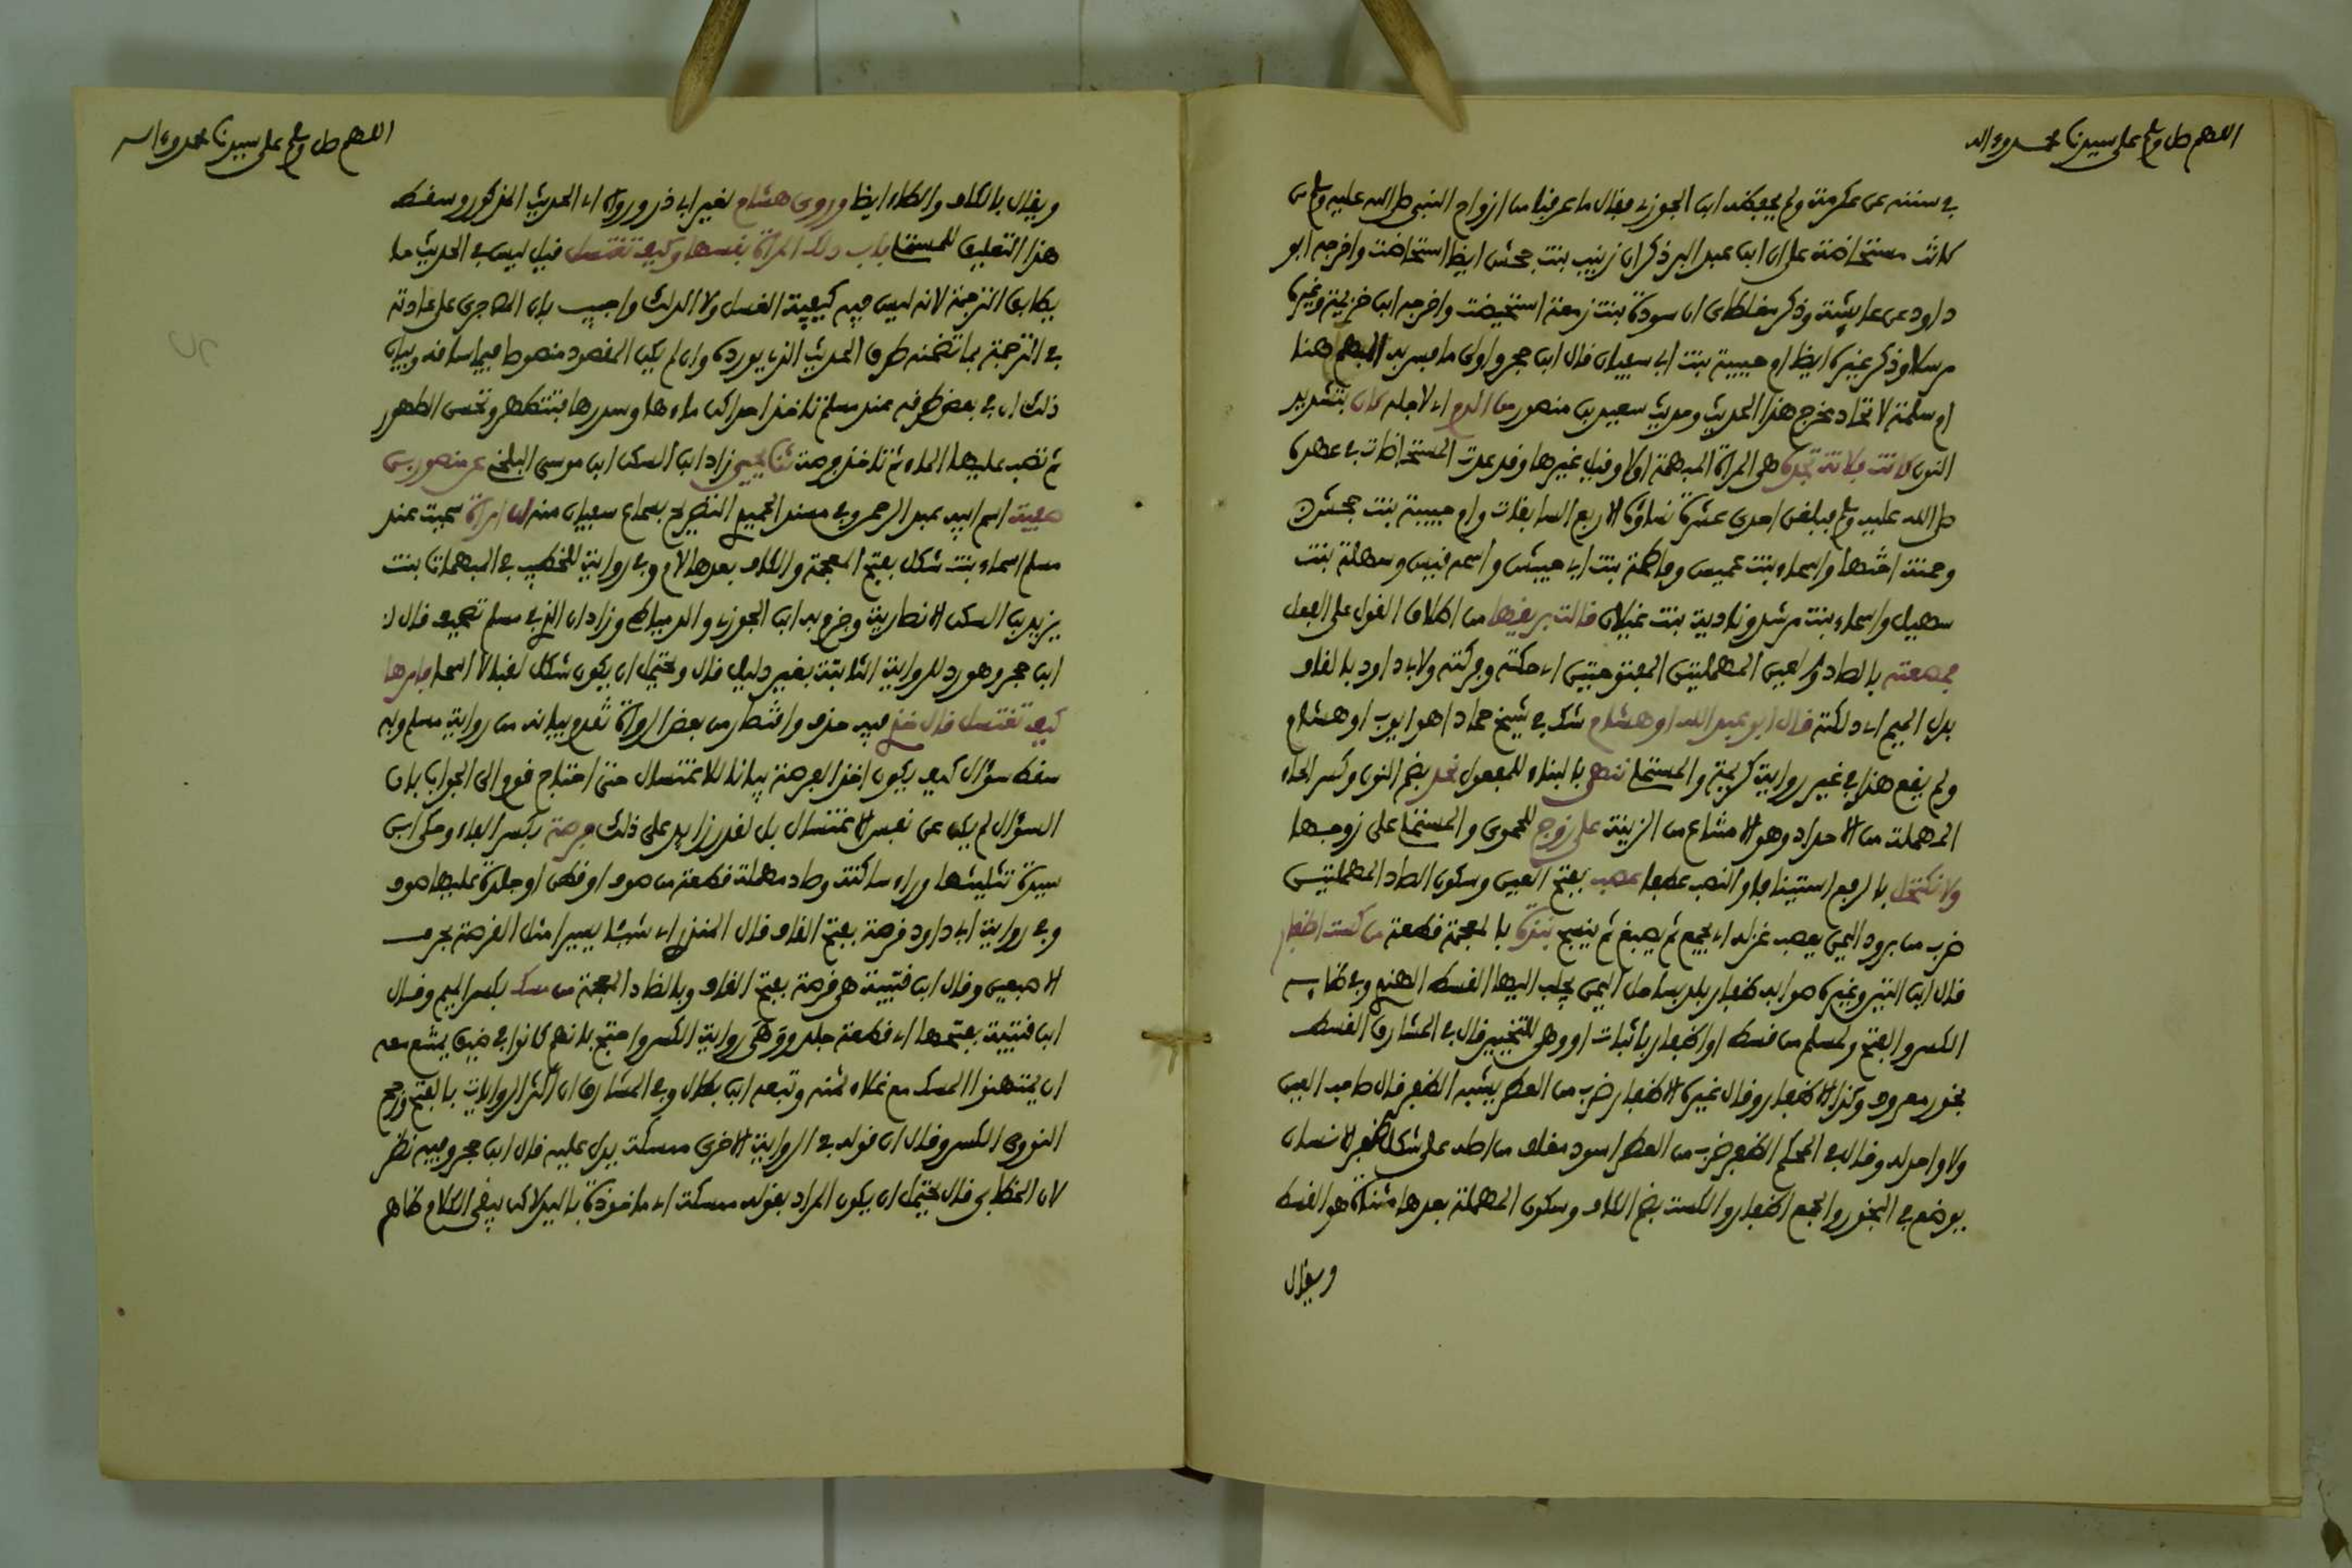 اللهم صل وسلم على سيدنا محمد وءاله
في سننه عن عكرمة ولم يحفظه ابن الجوزي فقال ما عرفنا من ازواج النبي صلى الله عليه وسلم من
كانت مستحاضة على ان ابن عبد البر ذكر ان زينب بنت جحش ايضا استحاضت واخرجه ابو
داود عن عايشة وذكر مغلطاي ان سودة بنت زمعة استحيضت واخرجه ابن خزيمة وغيره
مرسلا وذكر غيره ايضا ام حبيبة بنت ابي سفيان قال ابن حجر واولى ما يفسر به المبهم هنا
ام سلمة لاتحاد مخرج هذا الحديث وحديث سعيد بن منصور من الدم اي لاجله كان بتشديد
النون كانت فلانة تجده هي المراة المبهمة اولا وقيل غيرها وقد عدت المستحاضات في عهده
صلى الله عليه وسلم فبلغن احدى عشرة نسوة الاربع السابقات وام حبيبة بنت جحش
وحمنة اختها واسماء بنت عميس وفاطمة بنت ابي حبيش واسمه قيس وسهلة بنت
سهيل واسماء بنت مرشد وبادية بنت غيلان قالت بريقها من اطلاق القول على الفعل
فمصعته بالصاد والعين المهملتين المفتوحتين اي حكته وفركته ولابي داود بالقاف
بدل الميم اي دلكته قال ابو عبد الله او هشام شك في شيخ حماد اهو ايوب او هشام
ولم يقع هذا في غير رواية كريمة والمستملي ننهى بالبناء للمفعول نحد بضم النون وكسر الحاء
المهملة من الاحداد وهو الامتناع من الزينة على زوج للحموي والمستملي على زوجها
ولا نكتحل بالرفع استينافا والنصب عطفا عصب بفتح العين وسكون الصاد المهملتين
ضرب من برود اليمن يعصب غزله اي يجمع ثم يصبغ ثم ينسج نبذة بالمعجمة قطعة من كست اظفار
قال ابن التين وغيره صوابه ظفار بلد بساحل اليمن يجلب اليها القسط الهندي وفي ظايه
الكسر والفتح ولمسلم من قسط او اظفار باثبات او وهي للتخيير قال في المشارق القسط
بخور معروف وكذا الاظفار وقال غيره الاظفار ضرب من العطر يشبه الظفر قال صاحب العين
ولا واحد له وقال في المحكم الظفر ضرب من العطر اسود مغلف من اصله على شكل ظفر الانسان
يوضع في البخور والجمع اظفار والكست بضم الكاف وسكون المهملة بعدها مثناة هو القسط
ويقال
اللهم صل وسلم على سيدنا محمد وءاله
ويقال بالكاف والطاء ايضا وروى هشام لغير ابي ذر ورواه اي الحديث المذكور وسقط
هذا التعليق للمستملي باب دلك المراة نفسها وكيف تغتسل قيل ليس في الحديث ما
يطابق الترجمة لانه ليس فيه كيفية الغسل ولا الدلك واجيب بان المص جرى على عادته
في الترجمة بما تضمنه طرق الحديث الذي يورده وان لم يكن المقصود منصوصا فيما ساقه وبيان
ذلك ان في بعض طرقه عند مسلم تاخذ احداكن ماءها وسدرها فتتطهر وتحسن الطهور
ثم تصب عليها الماء ثم تاخذ فرصة ثنا يحيى زاد ابن السكن ابن موسى البلخي عن منصور بن
صفية اسم ابيه عبد الرحمن وفي مسند الحميدي التصريح بسماع سفيان منه ان امراة سميت عند
مسلم اسماء بنت شكل بفتح المعجمة والكاف بعدها لام وفي رواية للخطيب في المبهمات بنت
يزيد بن السكن الانصارية وجزم به ابن الجوزي والدمياطي وزاد ان الذي في مسلم تصحيف قال
ابن حجر وهو رد للرواية الثابتة بغير دليل قال ويحتمل ان يكون شكل لقبا لا اسما فامرها
كيف تغتسل قال خذي فيه حذف واختصار من بعض الرواة تقدم بيانه من رواية مسلم وبه
سقط سؤال كيف يكون اخذ الفرصة بيانا للاغتسال حتى احتاج قوم الى الجواب بان
السؤال لم يكن عن نفس الاغتسال بل لقدر زايد على ذلك فرصة بكسر الفاء وحكى ابن
سيدة تثليثها وراء ساكنة وصاد مهملة قطعة من صوف او قطن او جلدة عليها صوف
وفي رواية ابي داود قرصة بفتح القاف قال المنذري اي شيئا يسيرا مثل القرصة بطرف
الاصبعين وقال ابن قتيبة هي قرضة بفتح القاف وبالضاد المعجمة من مسك بكسر الميم وقال
ابن قتيبة بفتحها اي قطعة جلد ووهى رواية الكسر واحتج بانهم كانوا في ضيق يمتنع معه
ان يمتهنوا المسك مع غلاء ثمنه وتبعه ابن بطال وفي المشارق ان اكثر الروايات بالفتح ورجح
النووي الكسر وقال ان قوله في الرواية الاخرى ممسكة يدل عليه قال ابن حجر وفيه نظر
لان الخطابي قال يحتمل ان يكون المراد بقوله ممسكة اي ماخوذة باليد لاكن يبقى الكلام ظاهر